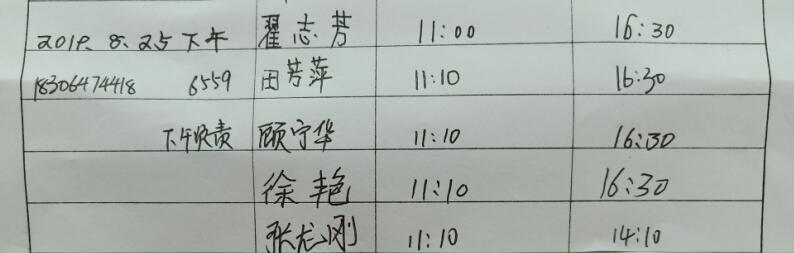 2019. 8. 25下午 翟志芳 11:00 16:30
18306474418 6559 田芳萍 11:10 16:30
下午收责 顾守华 11:10 16:30
徐艳 11:10 16:30
张龙刚 11:10 14:10